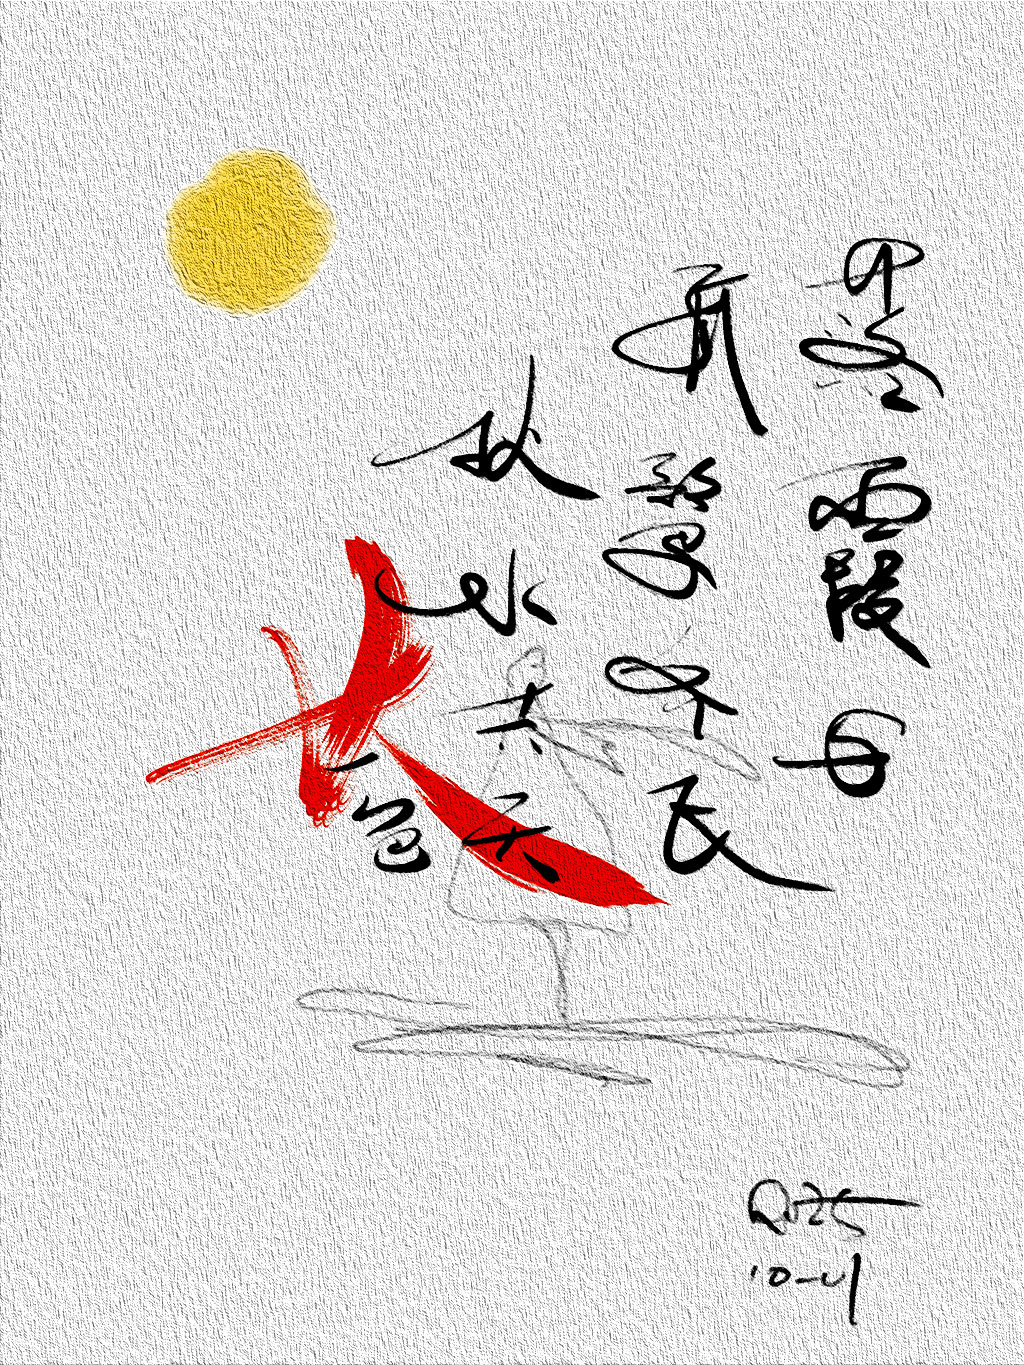 落霞与
孤鹜齐飞
秋水共长天
一色
2025
10-4